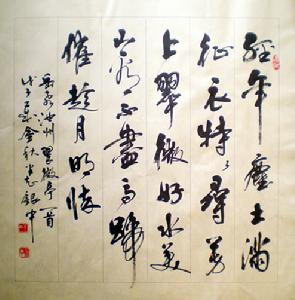 經年塵土滿
征衣特々尋芳
上翠微好水美
山看不盡馬蹄
催趁月明歸
岳飛池州翠微亭一首
戊子年金秋